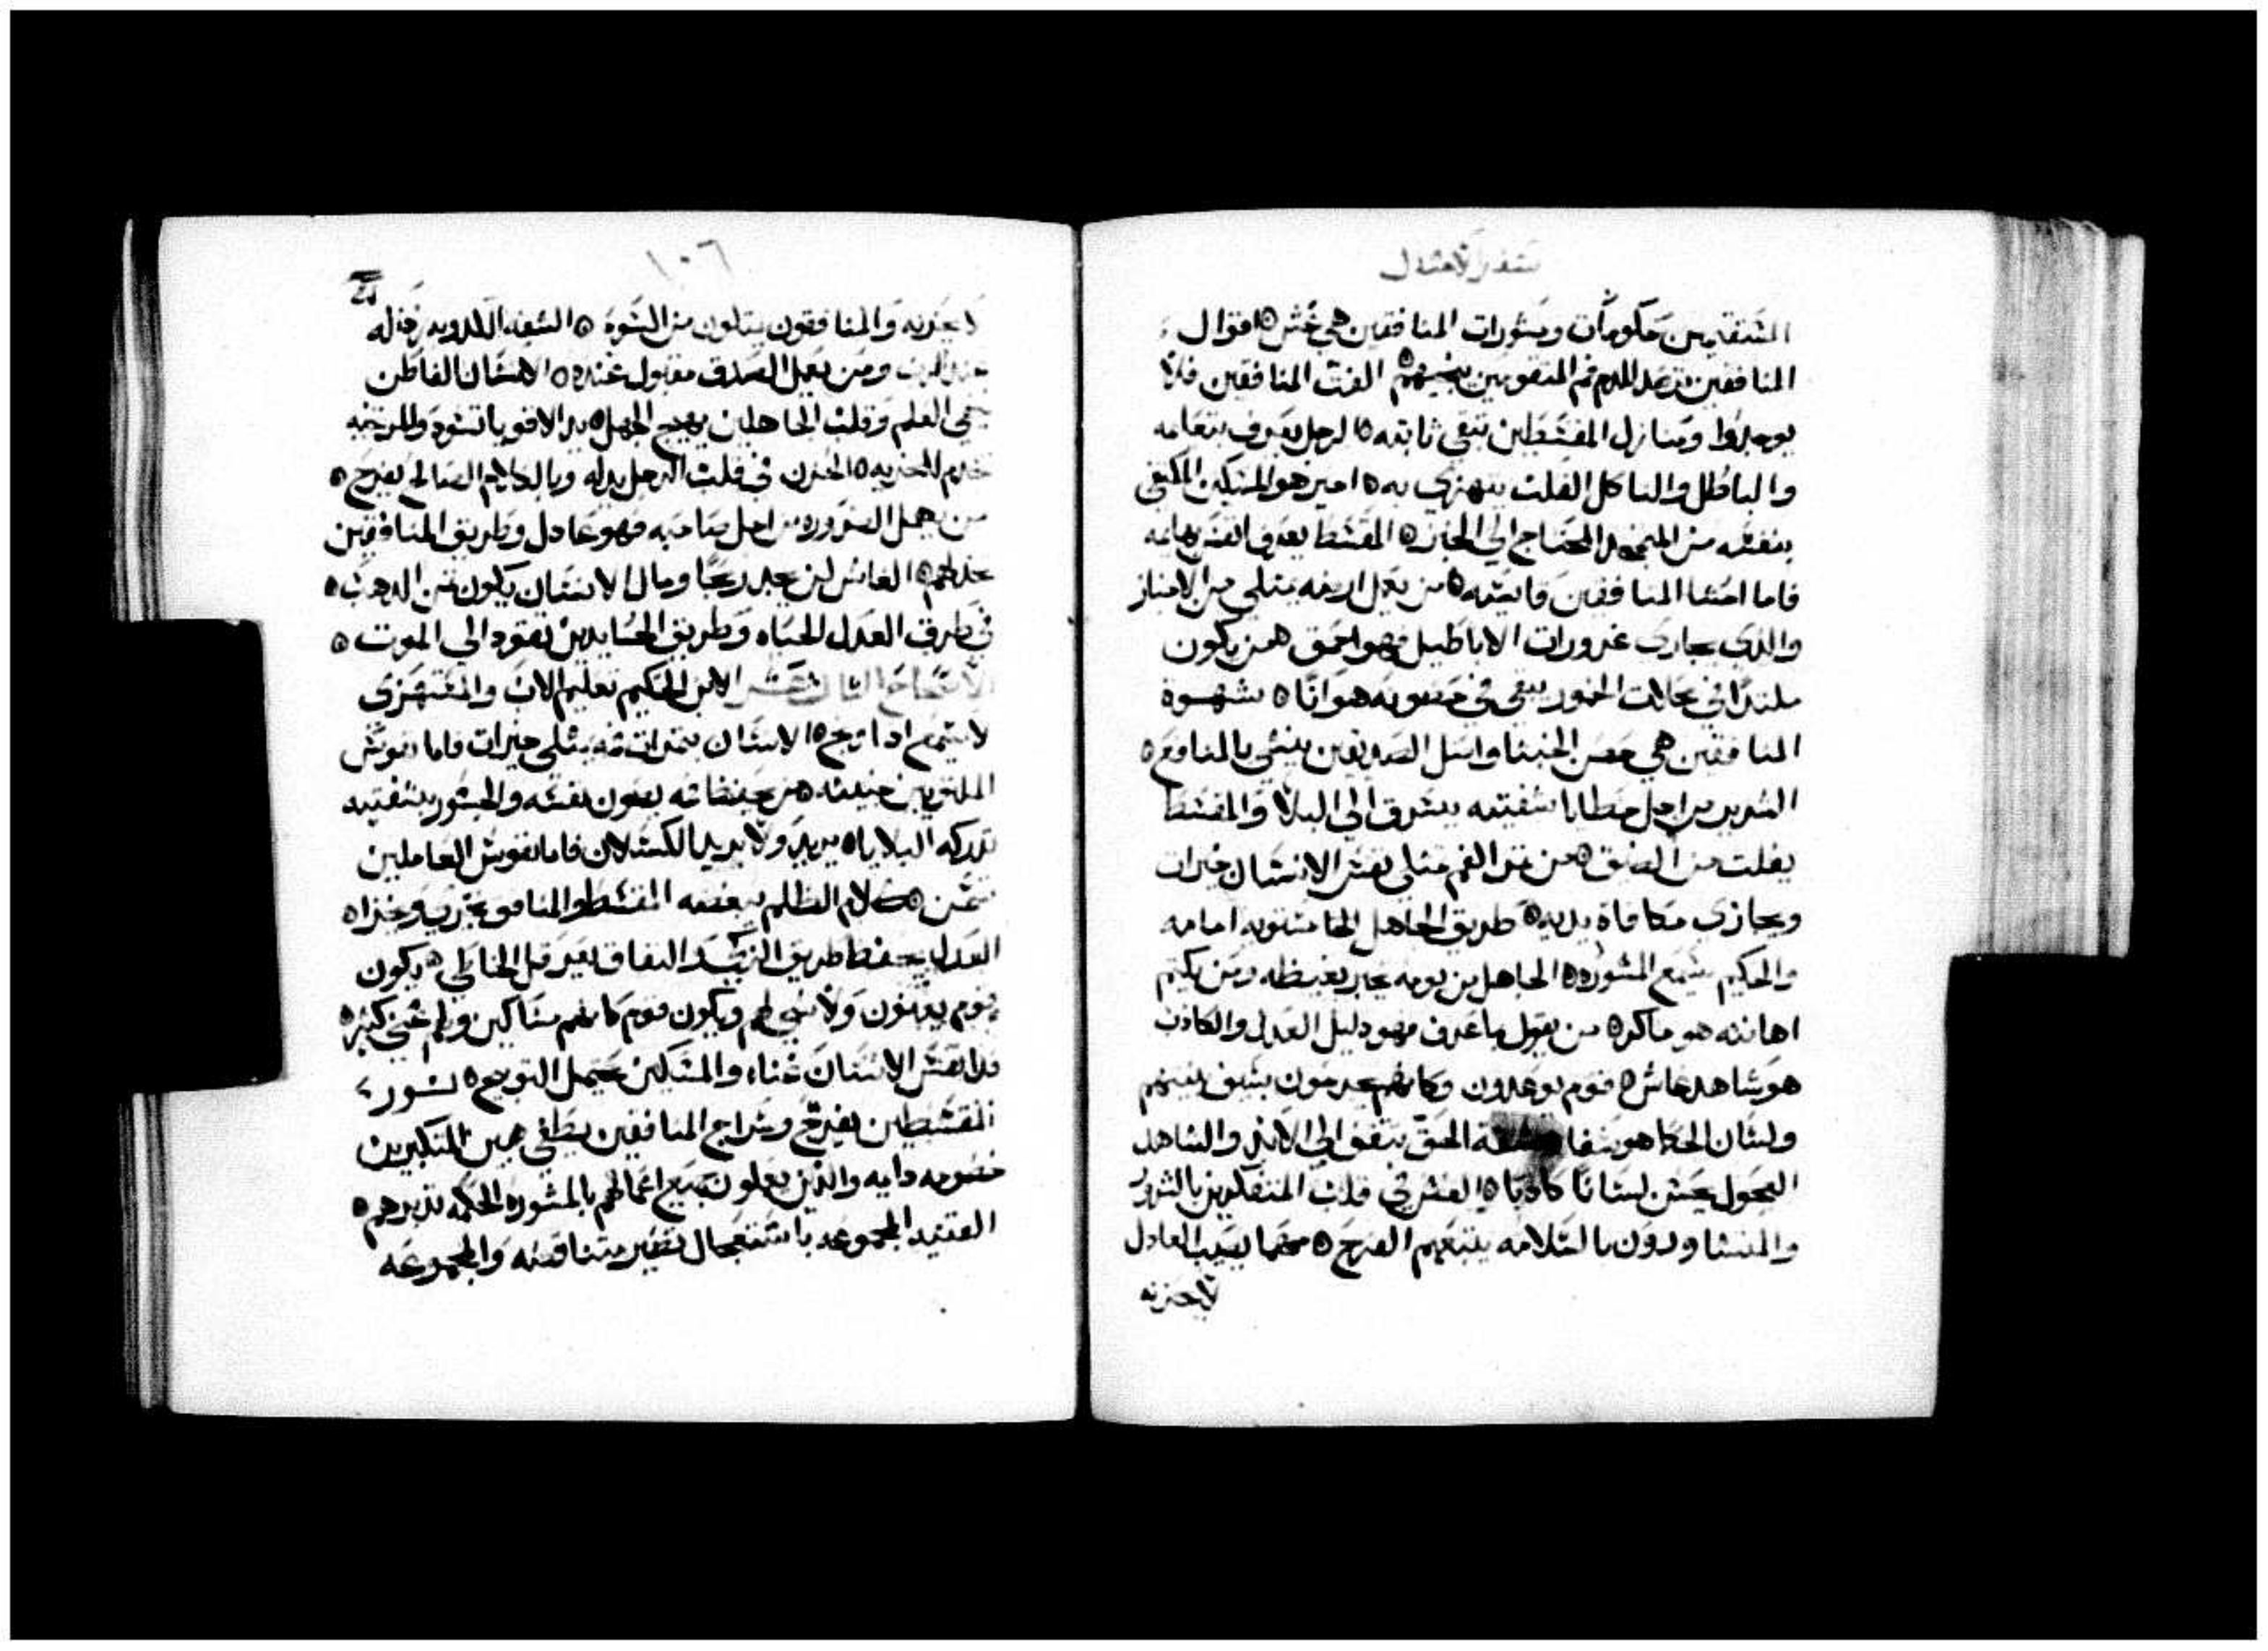 سفر الامثال
المستقيمين حكومات ومشورات المنافقين هي غش ه اقوال
المنافقين ترصد للدم فم المتقومين ينجيهم ه القلب المنافقين فلا
يوجدوا ومنازل المقسطين تبقي ثابته ه الرجل يعرف بتعامه
والباطل والناكل القلب يستهزي به ه اخير هو المسكين المكفي
بنفسه من المتمجد المحتاج الي الخبز ه المقسط يعرف انفس بهائمه
فاما احشا المنافقين قاسيه ه من يعمل ارضه يمتلي من الاخباز
والذي يجاري غرورات الاباطيل فهو احمق ه من يكون
ملتذا في محلات الخمور يبقي في حصونه هوانا ه شهوة
المنافقين هي حصن الخبثا واصل الصديقين ينشي بالمنافع ه
الشرير من اجل خطايا شفتيه يسرق الي البلا والمقسط
يفلت من الضيق ه من ثمر الفم تمتلي نفس الانسان خيرات
ويجازي مكافاة يديه ه طريق الجاهل الخا مستويه امامه
والحكيم يسمع المشوره ه الجاهل من يومه يخبر بغيظه ومن يكتم
اهانته هو ماكر ه من يقول ما عرف فهو دليل العدل والكاذب
هو شاهد غاش ه قوم يوعدون وكانهم يجرحون بسيف
ولسان الحكما هو شفا ه شفة الحق تبقي الي الابد والشاهد
العجول يحسن لسانا كاذبا ه الغش في قلب المتفكرين بالشرور
والمتشاورون بالسلامه يتبعهم الفرح ه مهما يصيب العادل
لا يحزنه
١٠٦
لا يحزنه والمنافقون يمتلون من السوء ه الشفه الكذوبه رذله
عند الرب ومن يعمل الصدق مقبول عنده ه الانسان الفاطن
يخفي العلم وقلب الجاهلين يهيج الجهل ه يد الاقويا تسود والمرخيه
تخدم للجزيه ه الحزن في قلب الرجل يذله وبالكلام الصالح يفرح ه
من يهمل الضروره من اجل صاحبه فهو عادل وطريق المنافقين
تخدعهم ه الغاش لن يجد ربحا ومال الانسان يكون ثمن الذهب ه
في طرق العدل الحياه وطريق الحسايدين تقود الي الموت ه
الاصحاح الثالث عشر الابن الحكيم تعليم الاب والمستهزي
لا يسمع اذا توبخ ه الانسان بثمرات فمه يمتلي خيرات فاما نفوس
الملتويين خبيثه ه من يحفظ فاه يصون نفسه والجسور بشفتيه
تدركه البلايا ه يريد ولا يريد الكسلان فاما نفوس العاملين
تسمن ه كلام الظلم يبغضه المقسط والمنافق يخزي ويخزا ه
العدل يحفظ طريق الزكي والنفاق يعرقل الخاطي ه يكون
قوم يغنون ولا شي لهم ويكون قوم كانهم مساكين ولهم غني كثير ه
فدا نفس الانسان غناه والمسكين يحتمل التوبيخ ه نور
المقسطين يفرح وسراج المنافقين يطفي ه بين المتكبرين
خصومه دايمه والذين يعملون جميع اعمالهم بالمشوره الحكمه تدبرهم ه
القنيه المجموعه باستعجال تصير متناقصه والمجموعه